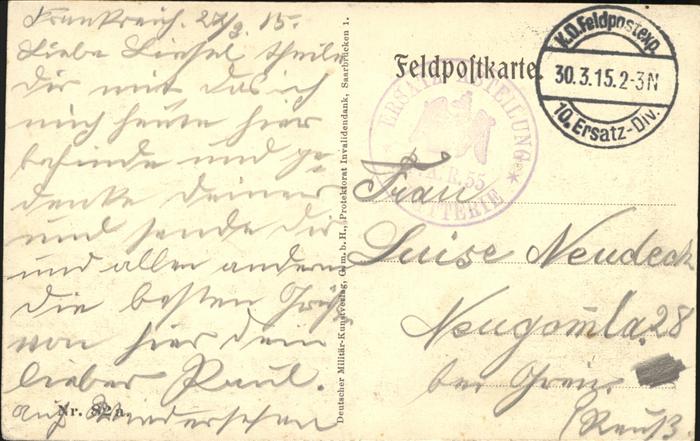 Frankreich. 27/3. 15.
Liebe Liesel theile
Dir mit das ich
mich heute hier
befinde und ge-
denke deiner
und sende dir
und allen andern
die besten Grüße
von hier dein
lieber Paul.
auf Wiedersehen
Nr. 82a.
Deutscher Militär-Kunstverlag, G. m. b. H., Protektorat Invalidendank, Saarbrücken 1.
Feldpostkarte.
K.D. Feldpostexp.
30.3.15.2-3N
10. Ersatz-Div.
ERSATZ ABTEILUNG
A. R. 55
BATTERIE
Frau
Luise Neudeck
Neugomla 28
bei Greiz.
(Reuß.